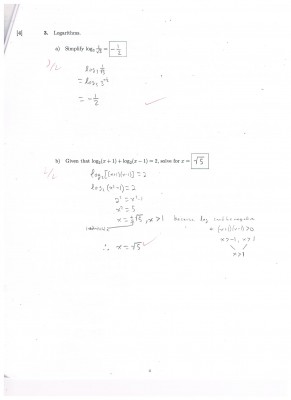 [4] 3. Logarithms.
a) Simplify log₅ 1/√5 = -1/2
2/2
log₅ 1/√5
= -1/2
b) Given that log₂(x + 1) + log₂(x − 1) = 2, solve for x = √5
log₂[(x+1)(x-1)] = 2
log₂(x²-1) = 2
2² = x²-1
x² = 5
x = ±√5, x>1 because log
(x+1)(x-1)>0
x>-1, x>1
x>1
∴ x = √5